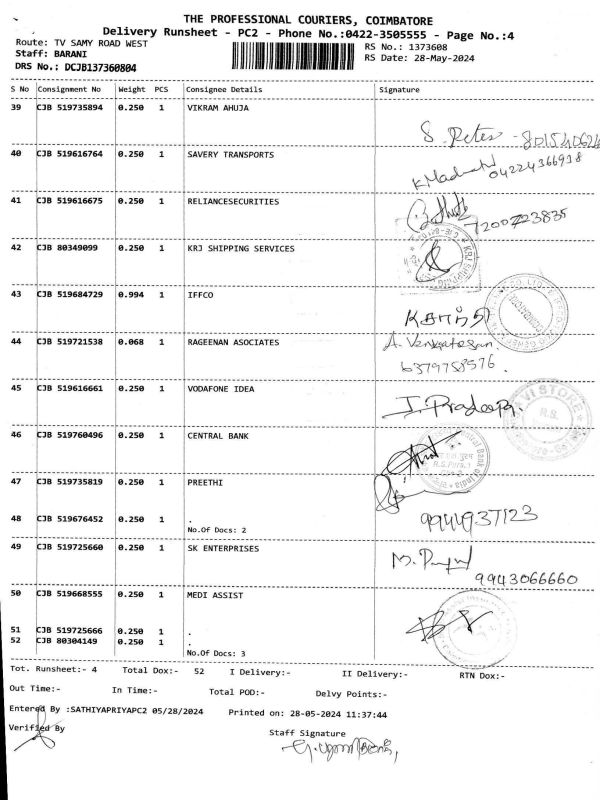 THE PROFESSIONAL COURIERS, COIMBATORE
Delivery Runsheet - PC2 - Phone No.:0422-3505555 - Page No.:4
Route: TV SAMY ROAD WEST
RS No.: 1373608
Staff: BARANI
RS Date: 28-May-2024
DRS No.: DCJB137360804
S No Consignment No Weight PCS Consignee Details Signature
39 CJB 519735894 0.250 1 VIKRAM AHUJA
40 CJB 519616764 0.250 1 SAVERY TRANSPORTS
04224366918
41 CJB 519616675 0.250 1 RELIANCESECURITIES
7200723835
42 CJB 80349099 0.250 1 KRJ SHIPPING SERVICES
43 CJB 519684729 0.994 1 IFFCO
44 CJB 519721538 0.068 1 RAGEENAN ASOCIATES
A. Venkatesan
6379758576.
45 CJB 519616661 0.250 1 VODAFONE IDEA
I. Pradeep
46 CJB 519760496 0.250 1 CENTRAL BANK
47 CJB 519735819 0.250 1 PREETHI
48 CJB 519676452 0.250 1 .
No.Of Docs: 2
9944937123
49 CJB 519725660 0.250 1 SK ENTERPRISES
9943066660
50 CJB 519668555 0.250 1 MEDI ASSIST
51 CJB 519725666 0.250 1 .
52 CJB 80304149 0.250 1 .
No.Of Docs: 3
Tot. Runsheet:- 4 Total Dox:- 52 I Delivery:- II Delivery:- RTN Dox:-
Out Time:- In Time:- Total POD:- Delvy Points:-
Entered By :SATHIYAPRIYAPC2 05/28/2024 Printed on: 28-05-2024 11:37:44
Verified By
Staff Signature